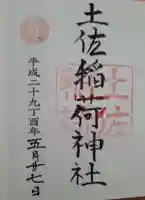 土佐稲荷神社
平成二十九年丁酉年五月廿七日